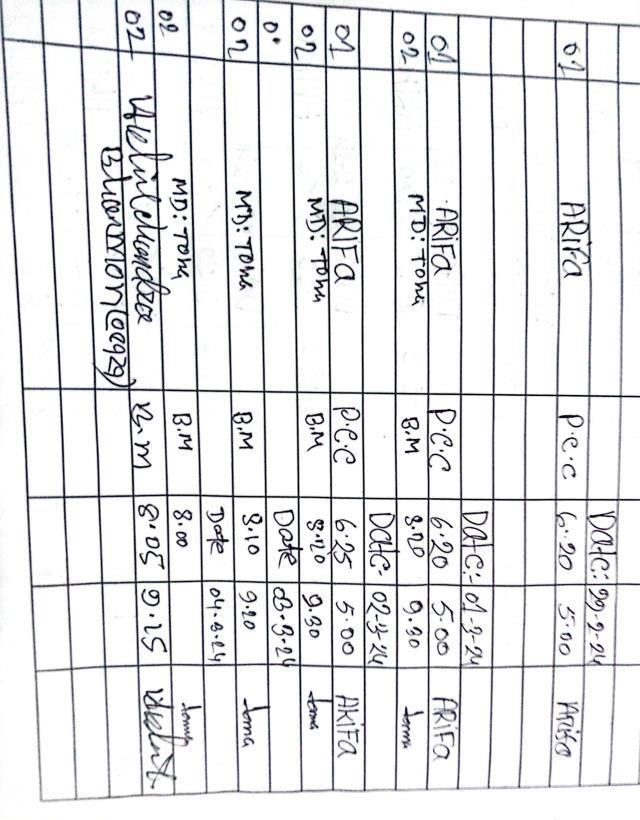 Date: 29-2-24
01 ARiFa P.C.C 6.20 5.00 Arifa
Date:- 01-3-24
01 ARiFa P.C.C 6.20 5.00 ARiFa
02 MD: Toha B.M 8.20 9.30
Date- 02-3-24
01 ARiFa P.C.C 6.25 5.00 ARiFa
02 MD: Toha B.M 8.20 9.30
Date 03.3.24
02 MD: Toha B.M 8.10 9.20
Date 04.3.24
02 MD: Toha B.M 8.00
02 8.05 9.15